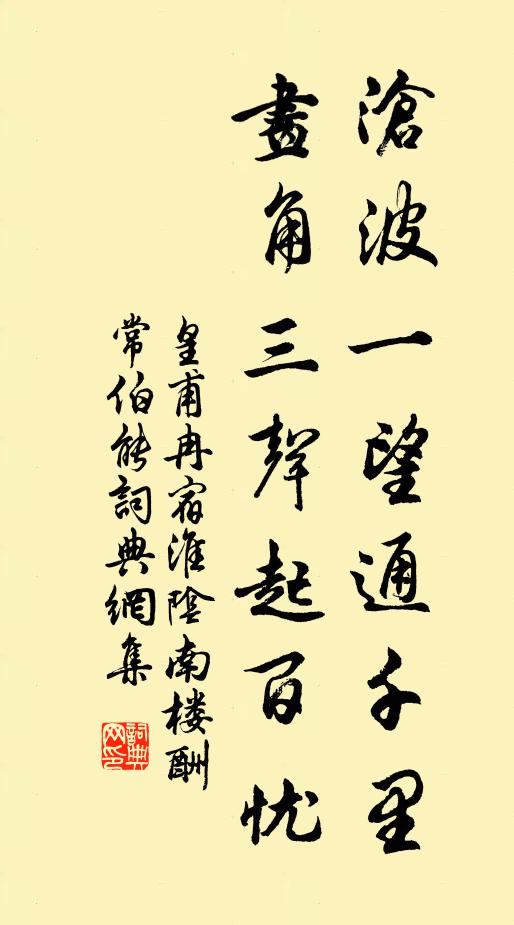 滄波一望通千里
畫角三聲起百忧
皇甫冉宿淮陰南楼酬
常伯能詞典網集
詞典網印